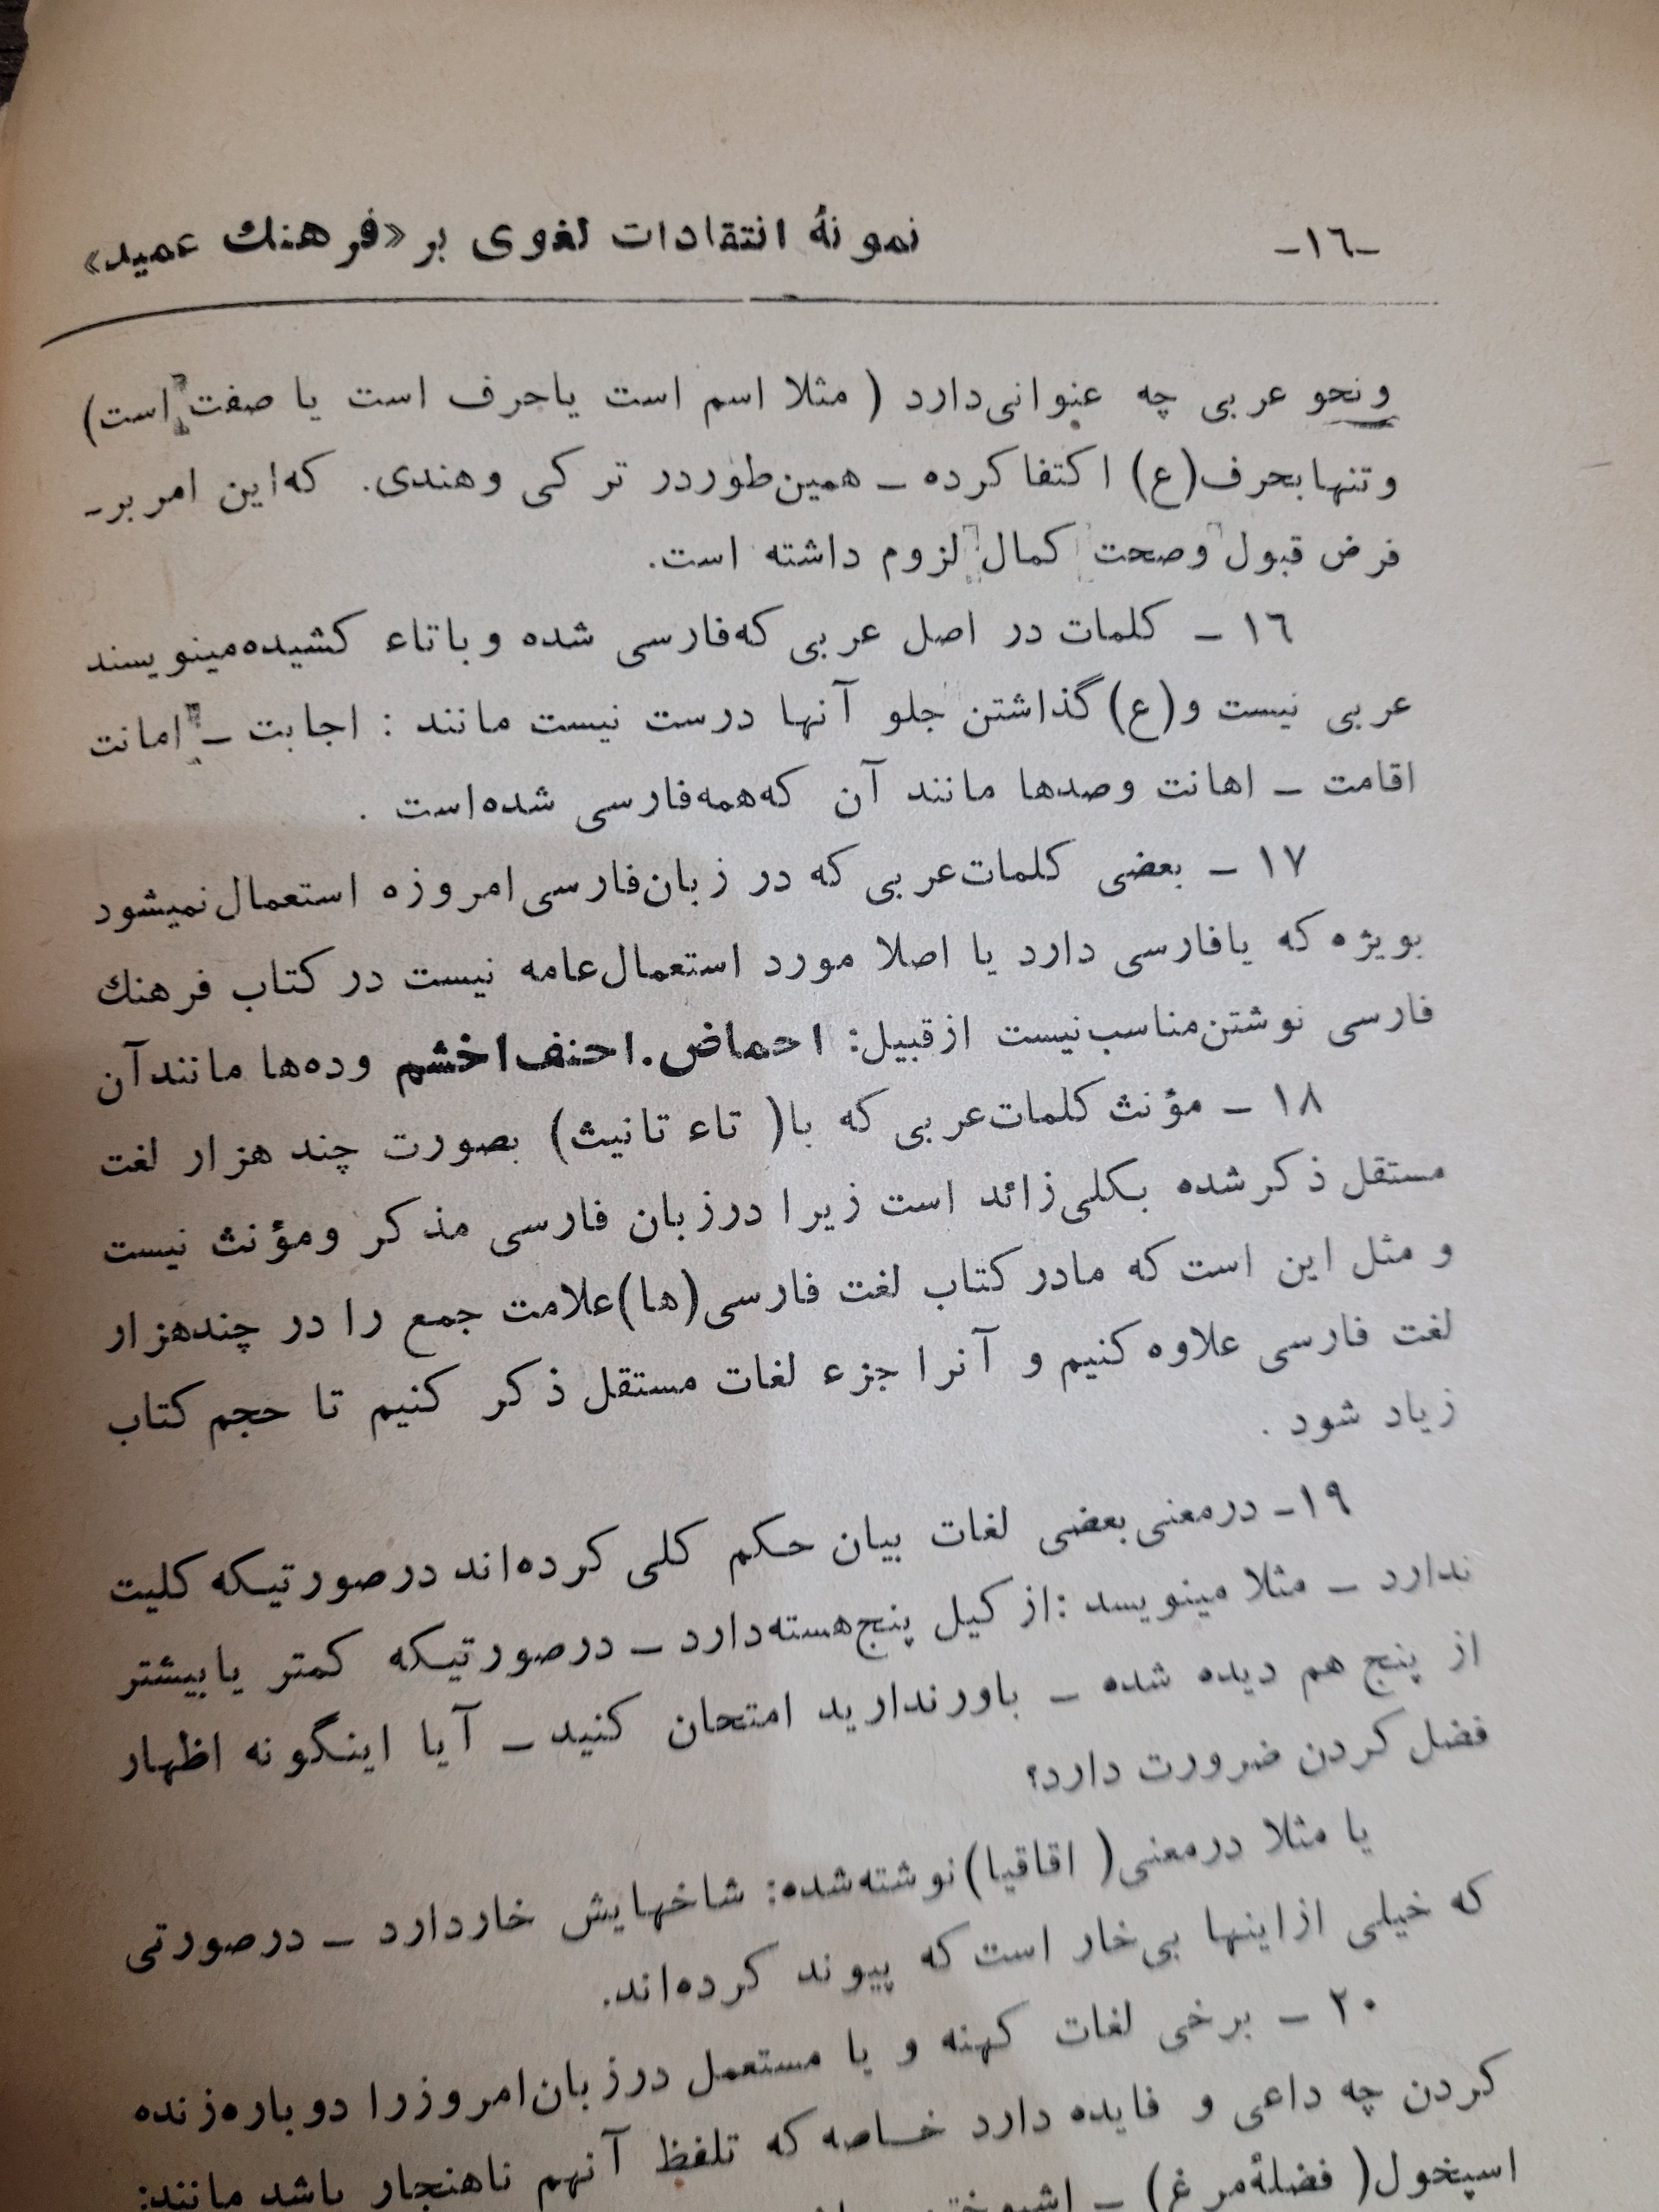 -١٦- نمونهٔ انتقادات لغوی بر «فرهنك عمید»
ونحو عربی چه عنوانی‌دارد ( مثلا اسم است یاحرف است یا صفت است)
وتنهابحرف(ع) اکتفاکرده ـ همین‌طوردر ترکی وهندی. که‌این امر بر-
فرض قبول وصحت کمال لزوم داشته است.
١٦ ـ کلمات در اصل عربی که‌فارسی شده وباتاء کشیده‌مینویسند
عربی نیست و(ع)گذاشتن جلو آنها درست نیست مانند : اجابت ـ امانت
اقامت ـ اهانت وصدها مانند آن که‌همه‌فارسی شده‌است .
١٧ ـ بعضی کلمات‌عربی که در زبان‌فارسی‌امروزه استعمال‌نمیشود
بویژه که یافارسی دارد یا اصلا مورد استعمال‌عامه نیست در کتاب فرهنك
فارسی نوشتن‌مناسب‌نیست ازقبیل: احماض.احنف‌اخشم وده‌ها مانندآن
١٨ ـ مؤنث‌کلمات‌عربی که با( تاء تانیث) بصورت چند هزار لغت
مستقل ذکرشده بکلی‌زائد است زیرا درزبان فارسی مذکر ومؤنث نیست
و مثل این است‌که مادر کتاب لغت فارسی(ها)علامت جمع را در چندهزار
لغت فارسی علاوه کنیم و آنرا جزء لغات مستقل ذکر کنیم تا حجم کتاب
زیاد شود .
١٩- درمعنی‌بعضی لغات بیان حکم کلی کرده‌اند درصورتیکه کلیت
ندارد ـ مثلا مینویسد :ازکیل پنج‌هسته‌دارد ـ درصورتیکه کمتر یابیشتر
از پنج هم دیده شده ـ باورندارید امتحان کنید ـ آیا اینگونه اظهار
فضل کردن ضرورت دارد؟
یا مثلا درمعنی( اقاقیا)نوشته‌شده: شاخهایش خاردارد ـ درصورتی
که خیلی ازاینها بی‌خار است‌که پیوند کرده‌اند.
٢٠ ـ برخی لغات کهنه و یا مستعمل درزبان‌امروزرا دوباره‌زنده
کردن چه داعی و فایده دارد خاصه که تلفظ آنهم ناهنجار باشد مانند:
اسپخول( فضلهٔ‌مرغ) ـ